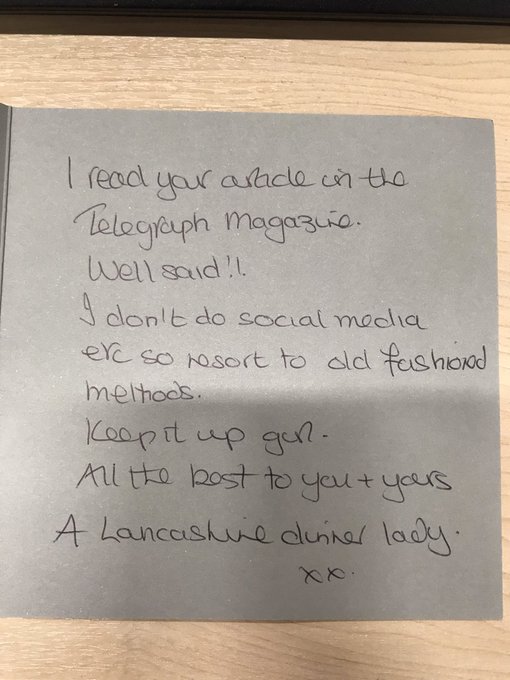 I read your article in the
Telegraph Magazine.
Well said!!
I don't do social media
etc so resort to old fashioned
methods.
Keep it up girl.
All the best to you + yours
A Lancashire dinner lady.
xx.